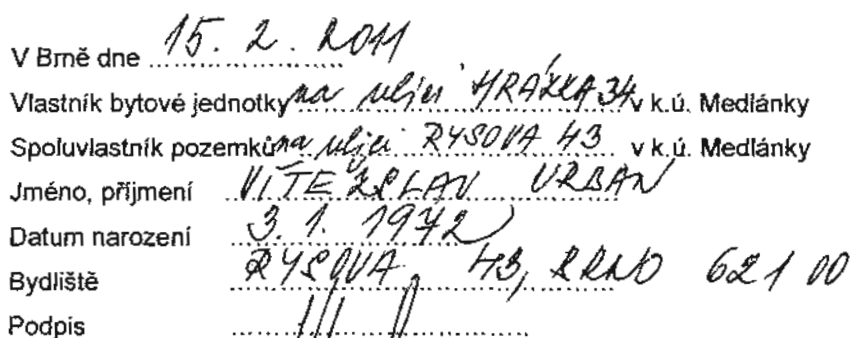 V Brně dne 15. 2. 2011
Vlastník bytové jednotky na ulici HRÁZKA 34 v k.ú. Medlánky
Spoluvlastník pozemků na ulici RYSOVA 43 v k.ú. Medlánky
Jméno, příjmení VÍTĚZSLAV URBAN
Datum narození 3. 1. 1972
Bydliště RYSOVA 43, BRNO 621 00
Podpis